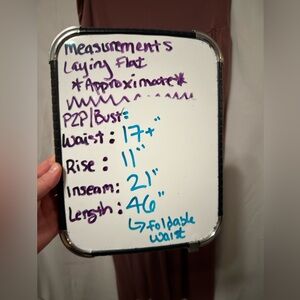 measurements
Laying Flat
*Approximate*
P2P/Bust:
Waist: 17+"
Rise: 11"
Inseam: 21"
Length: 46"
↳ foldable
waist